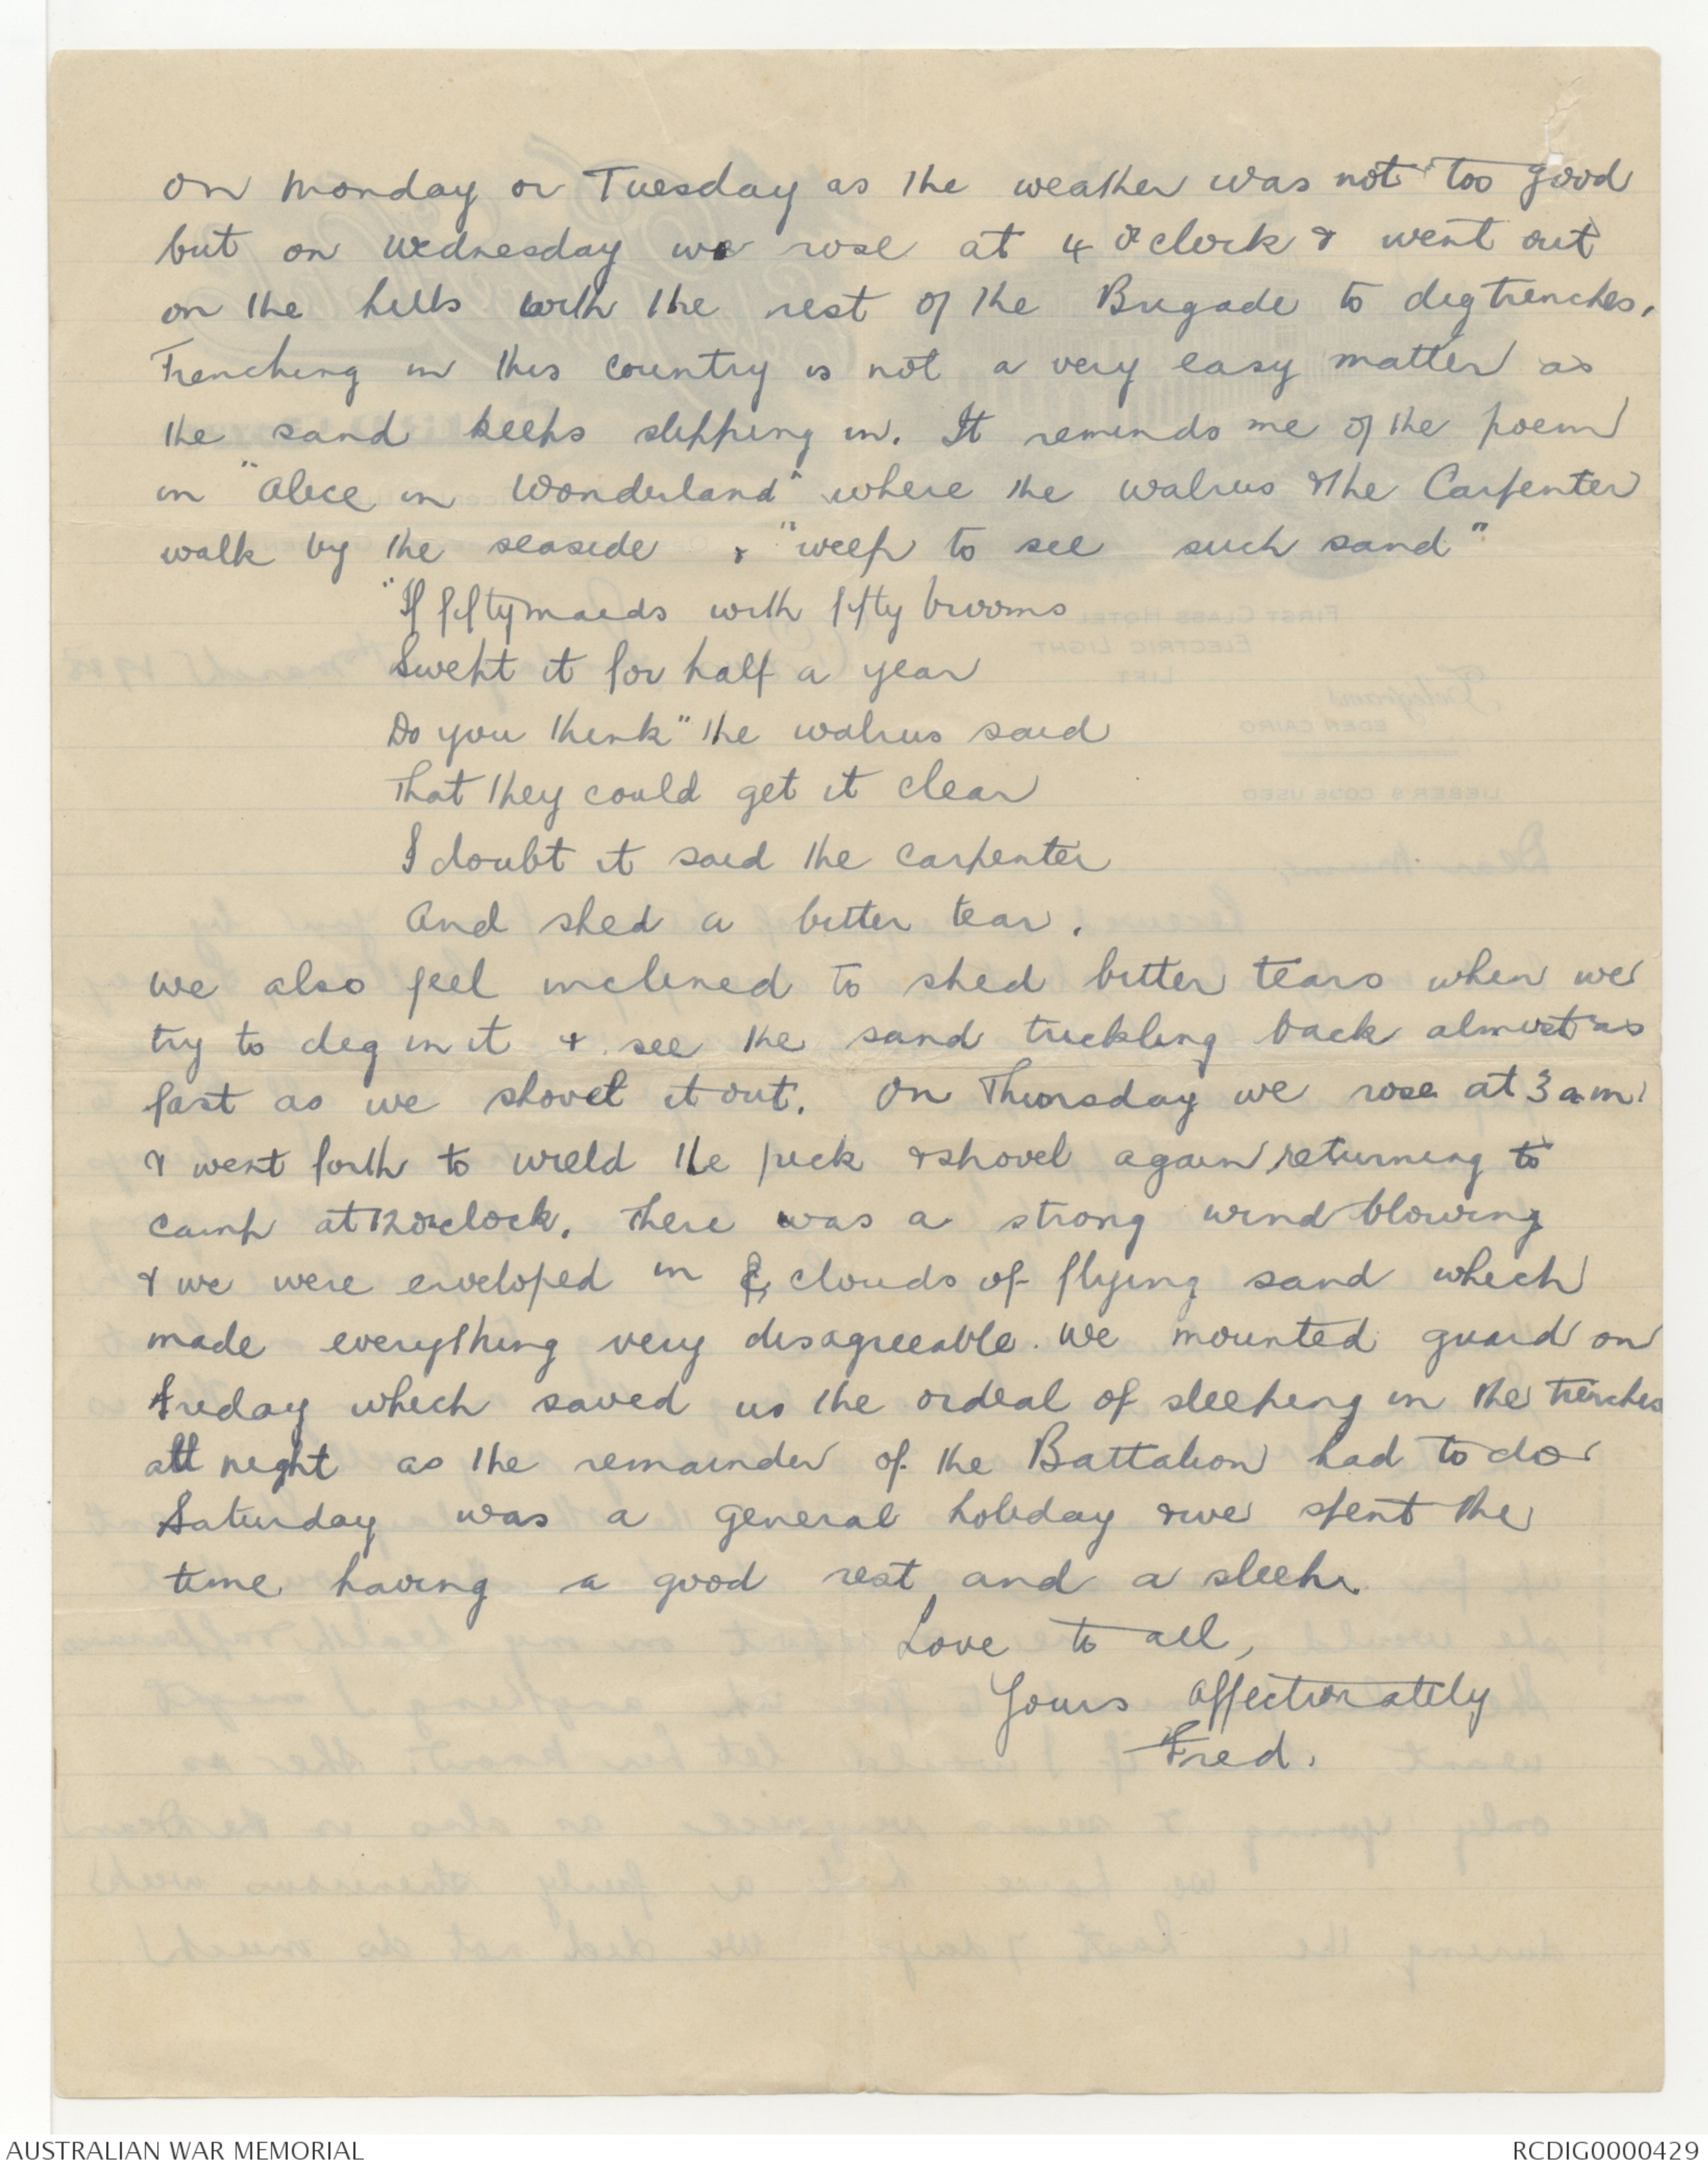 on Monday or Tuesday as the weather was not too good
but on Wednesday we rose at 4 o'clock & went out
on the hills with the rest of the Brigade to dig trenches.
Trenching in this country is not a very easy matter as
the sand keeps slipping in. It reminds me of the poem
in "Alice in Wonderland" where the walrus & the Carpenter
walk by the seaside & "weep to see such sand"
"If fifty maids with fifty brooms
Swept it for half a year
Do you think" the walrus said
That they could get it clear
I doubt it said the carpenter
And shed a bitter tear.
We also feel inclined to shed bitter tears when we
try to dig in it & see the sand trickling back almost as
fast as we shovel it out. On Thursday we rose at 3 am
& went forth to wield the pick & shovel again, returning to
camp at 12 o'clock. There was a strong wind blowing
& we were enveloped in clouds of flying sand which
made everything very disagreeable. We mounted guard on
Friday which saved us the ordeal of sleeping in the trenches
all night as the remainder of the Battalion had to do
Saturday was a general holiday & we spent the
time having a good rest and a sleep.
Love to all,
Yours affectionately
Fred.
FIRST CLASS HOTEL
ELECTRIC LIGHT
LIFT
Telegrams
EDEN CAIRO
LIEBER'S CODE USED
AUSTRALIAN WAR MEMORIAL
RCDIG0000429